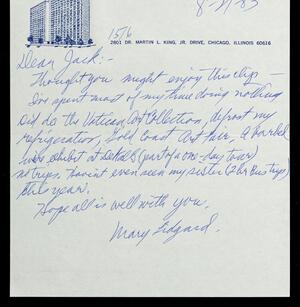 8-21-83
1516
2801 DR. MARTIN L. KING, JR. DRIVE, CHICAGO, ILLINOIS 60616
Dear Jack:-
Thought you might enjoy this clip.
I've spent most of my time doing nothing
Did do the Vatican Art Collection, defrost my
refrigeration, Gold Coast Art fair, a
exhibit at (part of a one-day tour)
no trips. Havint even seen my sister (2 hr Bus trip)
this year.
Hope all is well with you.
Mary